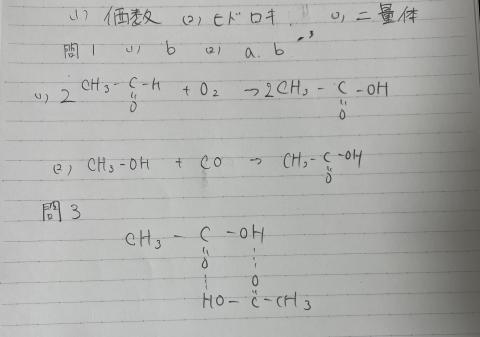 (1) 価数 (2) ヒドロキ (3) 二量体
問1 (1) b (2) a.b
(1) 2CH₃-C-H + O₂ →2CH₃-C-OH
O O
(2) CH₃-OH + CO → CH₃-C-OH
O
問3
CH₃-C-OH
O O
HO-C-CH₃